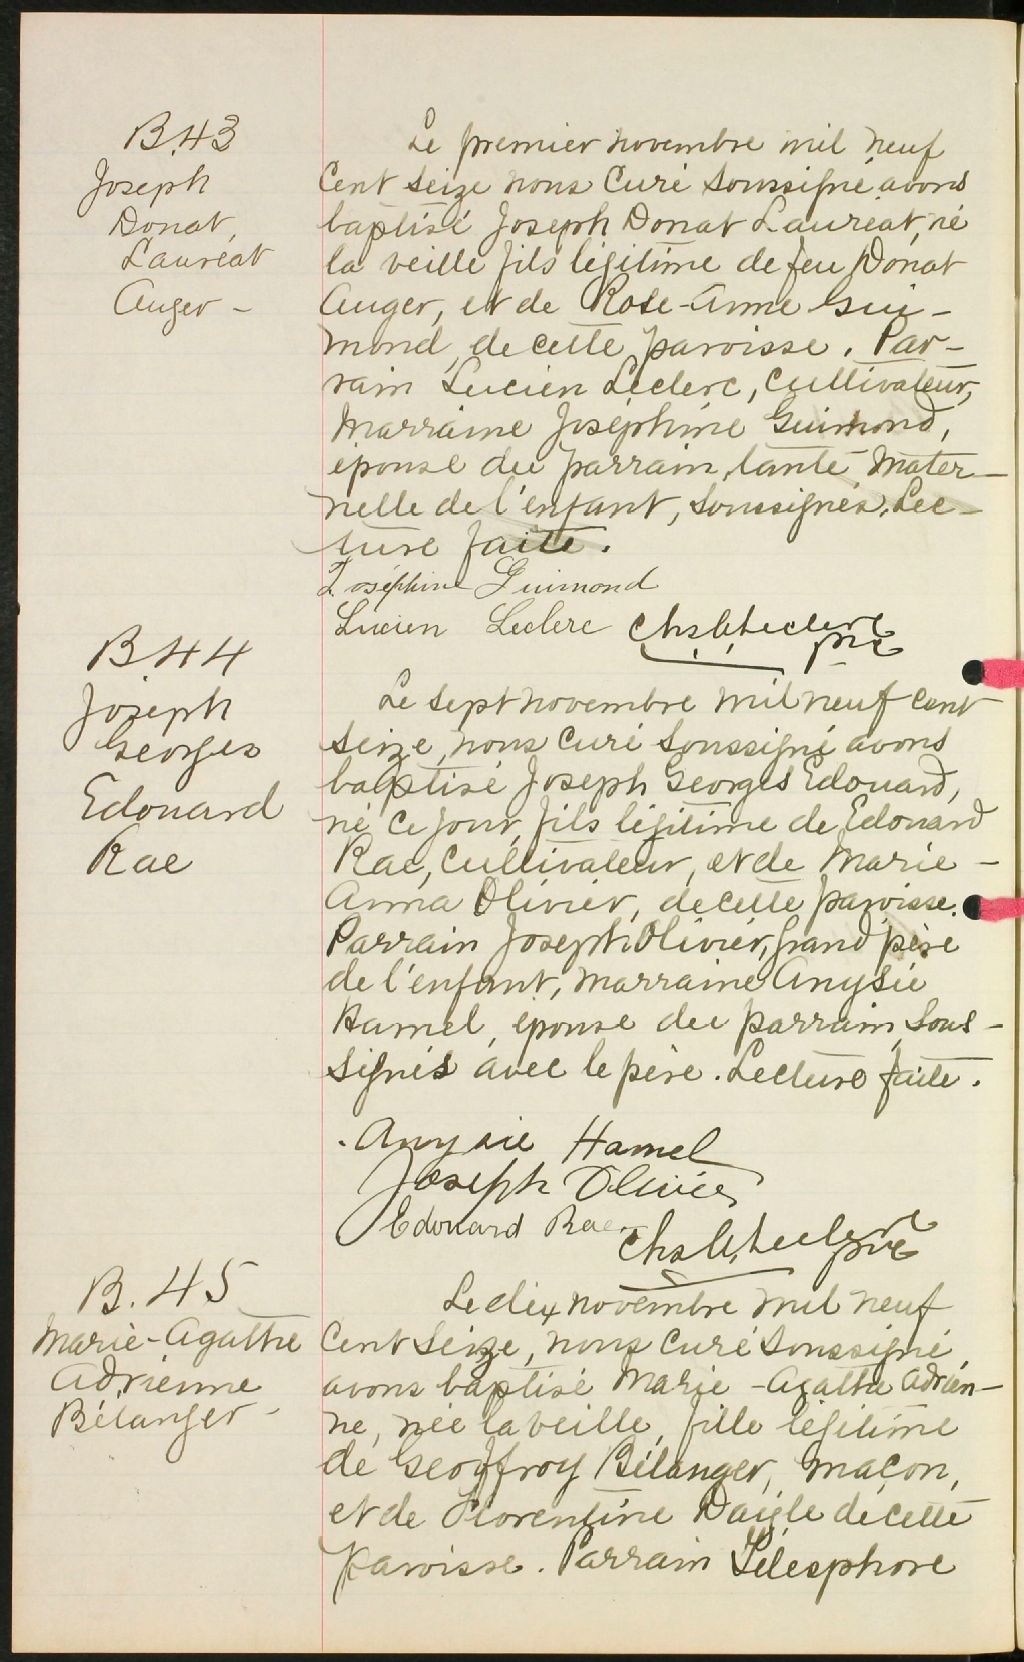 B.43
Joseph
Donat,
Lauréat
Auger -
Le premier novembre mil neuf
cent seize nous curé soussigné avons
baptisé Joseph Donat Lauréat, né
la veille fils légitime de feu Donat
Auger, et de Rose-Anne Gui-
mond, de cette paroisse. Par-
rain Lucien Leclerc, cultivateur,
marraine Joséphine Guimond,
épouse du parrain, tante mater-
nelle de l'enfant, soussignés. Lec-
ture faite.
Joséphine Guimond
Lucien Leclerc
ptre
B 44
Joseph
Georges
Edouard
Rae
Le sept novembre mil neuf cent
seize, nous curé soussigné avons
baptisé Joseph Georges Edouard,
né ce jour, fils légitime de Edouard
Rae, cultivateur, et de Marie-
Anna Olivier, de cette paroisse.
Parrain Joseph Olivier, grand'père
de l'enfant, marraine Anysie
Hamel, épouse du parrain, sous-
signés avec le père. Lecture faite.
Anysie Hamel
Joseph Olivier
Edouard Rae
ptre
B. 45
Marie-Agathe
Adrienne
Bélanger -
Le dix novembre mil neuf
cent seize, nous curé soussigné
avons baptisé Marie-Agathe Adrien-
ne, née la veille, fille légitime
de Geoffroy Bélanger, maçon,
et de Florentine Daigle de cette
paroisse. Parrain Télesphore